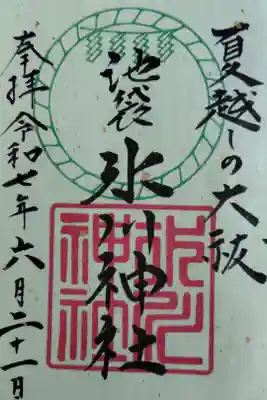 夏越しの大祓
池袋氷川神社
奉拝令和七年六月二十一日
氷川神社